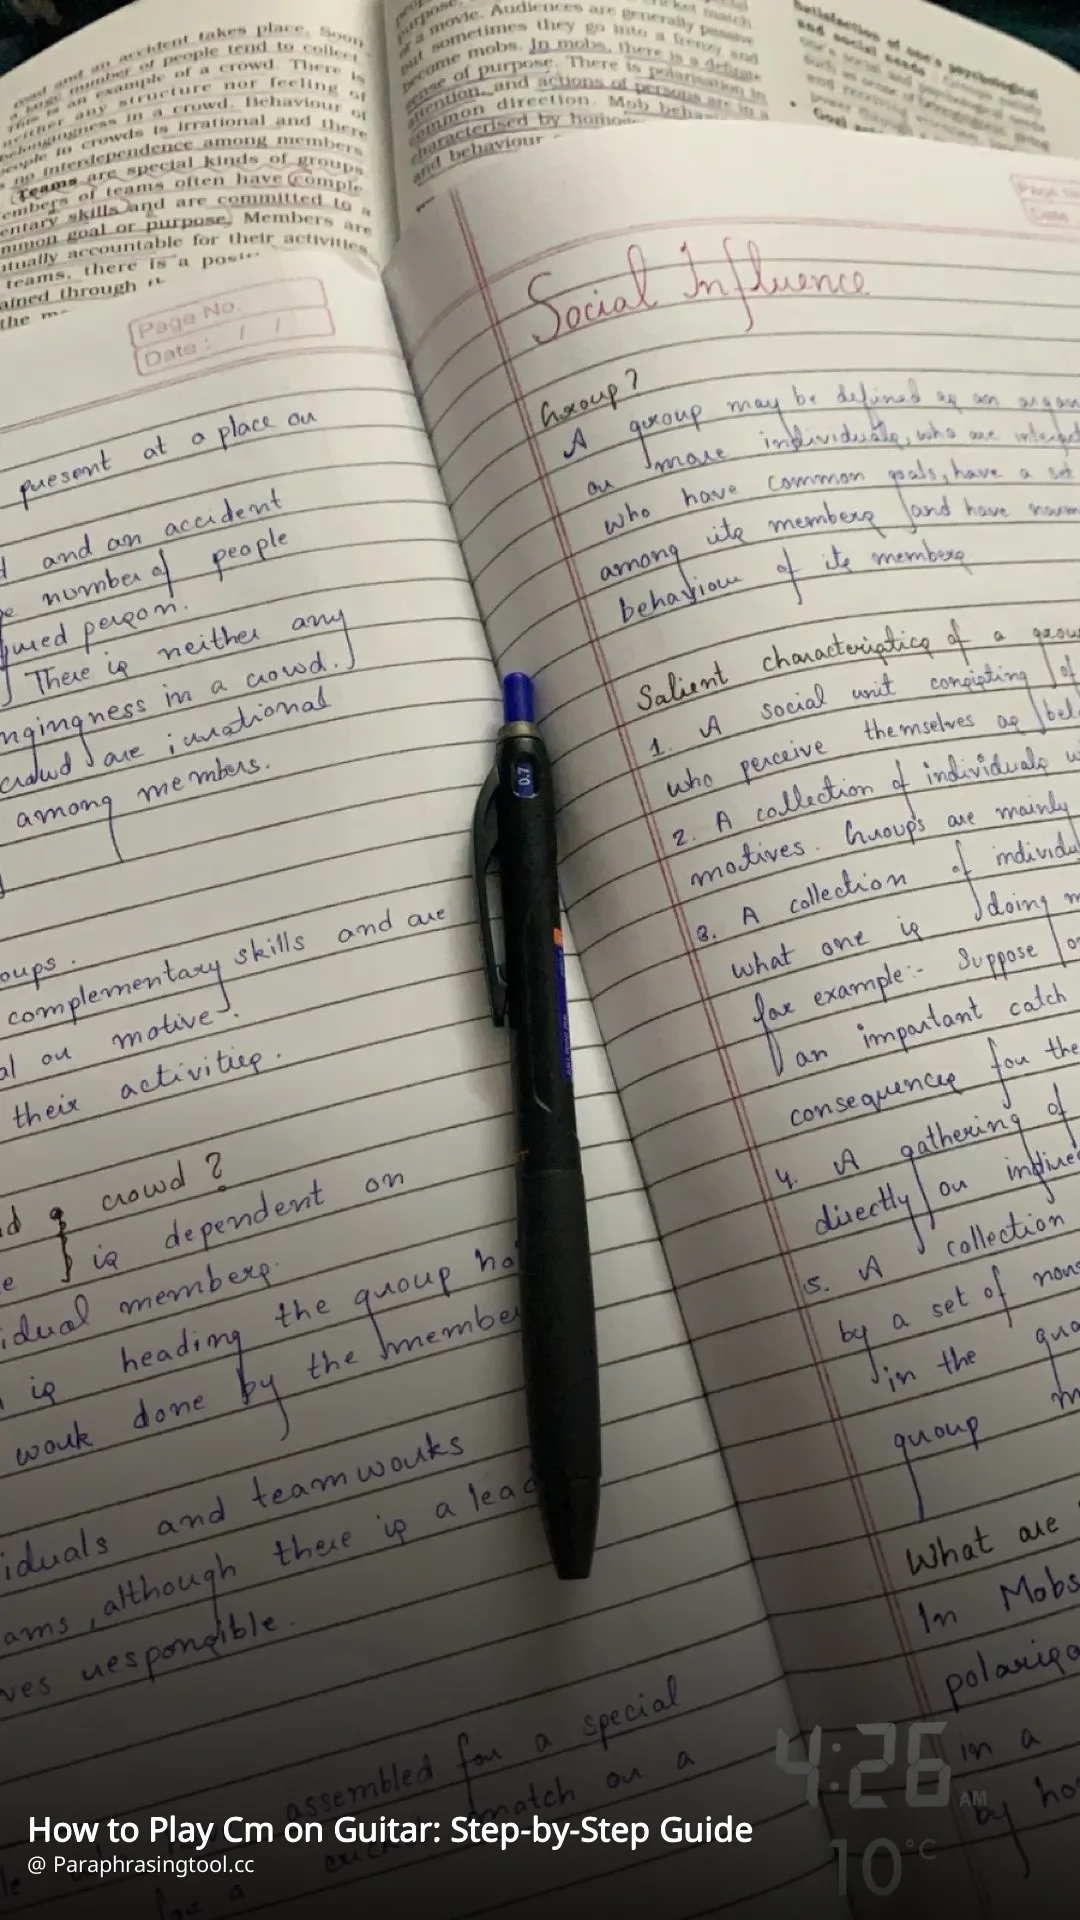 road and an accident takes place. Soon
a large number of people tend to collect
This is an example of a crowd. There is
neither any structure nor feeling of
belongingness in a crowd. Behaviour of
people in crowds is irrational and there
is no interdependence among members
Teams are special kinds of groups
embers of teams often have comple
entary skills and are committed to a
mmon goal or purpose. Members are
utually accountable for their activities
teams, there is a posi
ained through it
the m
purpose.
of a movie. Audiences are generally passive
but sometimes they go into a frenzy and
become mobs. In mobs, there is a definite
sense of purpose. There is polarisation in
attention, and actions of persons are in
common direction. Mob behav
characterised by homog
and behaviour
Satisfaction of one's psychological
and social needs
Page No.
Date : / /
present at a place or
d and an accident
e number of people
jured person.
There is neither any
ngingness in a crowd.
crowd are irrational
among members.
oups.
complementary skills and are
al or motive.
their activities.
crowd ?
e is dependent on
idual members.
is heading the group ha
work done by the member
iduals and teamworks
ams, although there is a lead
ves responsible.
assembled for a special
cricket match or a
for a
Page No
Date
Social Influence
Group?
A group may be defined as an organ
or more individuals, who are interact
who have common goals, have a set
among its members and have norm
behaviour of its members.
Salient characteristics of a grou
1. A social unit consisting of
who perceive themselves as bel
2. A collection of individuals w
motives. Groups are mainly
3. A collection of individu
what one is doing m
for example:- Suppose
an important catch
consequences for the
4. A gathering of
directly or indire
5. A collection
by a set of norm
in the gro
group m
What are
In Mobs
polarisa
in a
by ho
0.7
4:26 AM
10°C
How to Play Cm on Guitar: Step-by-Step Guide
@ Paraphrasingtool.cc